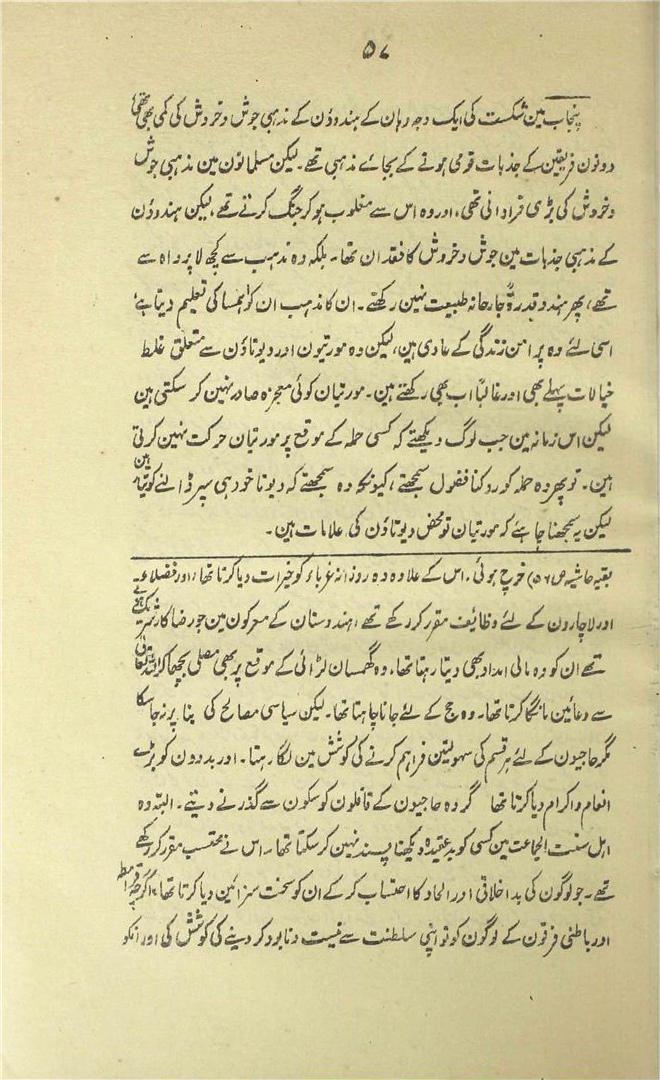 ۵۷
پنجاب مین شکست کی ایک وجہ وہان کے ہندوؤن کے مذہبی جوش وخروش کی کمی بھی تھی
دونون فریقین کے جذبات قومی ہونے کے بجائے مذہبی تھے۔ لیکن مسلمانون مین مذہبی جوش
وخروش کی بڑی فراوانی تھی، اور وہ اس سے مغلوب ہو کر جنگ کرتے تھے، لیکن ہندوؤن
کے مذہبی جذبات مین جوش وخروش کا فقدان تھا۔ بلکہ وہ مذہب سے کچھ لاپرواہ سے
تھے، پھر ہندو قدرۃً جارحانہ طبیعت نہین رکھتے۔ ان کا مذہب ان کو اہمسا کی تعلیم دیتا ہے
اسی لئے وہ پرامن زندگی کے عادی ہین، لیکن وہ مورتیون اور دیوتاؤن سے متعلق غلط
خیالات پہلے بھی اور غالباً اب بھی رکھتے ہین۔ مورتیان کوئی معجزہ صادر نہین کر سکتی ہین
لیکن اس زمانہ مین جب لوگ دیکھتے کہ کسی حملہ کے موقع پر مورتیان حرکت نہین کرتی
ہین۔ تو پھر وہ حملہ کو روکنا فضول سمجھتے، کیونکہ وہ سمجھتے کہ دیوتا خود ہی سپر ڈالنے کو تیار ہین
لیکن یہ سمجھنا چاہئے کہ مورتیان تو محض دیوتاؤن کی علامات ہین۔
بقیہ حاشیہ ص ۵۶) خرچ ہوئی، اس کے علاوہ وہ روزانہ غرباء کو خیرات دیا کرتا تھا، اور فضلاء
اور لاچارون کے لئے وظائف مقرر کر رکھے تھے، ہندوستان کے معرکون مین جو رضاکار شریک ہوتے
تھے ان کو وہ مالی امداد بھی دیتا رہتا تھا، وہ گھمسان لڑائی کے موقع پر بھی مصلی بچھا کر اللہ تعالی
سے دعائین مانگا کرتا تھا۔ وہ حج کے لئے جانا چاہتا تھا۔ لیکن سیاسی مصالح کی بنا پر نہ جا سکا
مگر حاجیون کے لئے ہر قسم کی سہولتین فراہم کرنے کی کوشش مین لگا رہتا۔ اور بدوون کو بڑے
انعام واکرام دیا کرتا تھا گر وہ حاجیون کے قافلون کو سکون سے گذرنے دیتے۔ البتہ وہ
اہل سنت الجماعت مین کسی کو بدعقیدہ دیکھنا پسند نہین کر سکتا تھا۔ اس نے محتسب مقرر کر رکھے
تھے۔ جو لوگون کی بداخلاقی اور الحاد کا احتساب کر کے ان کو سخت سزائین دیا کرتا تھا، اگرچہ قرامطہ
اور باطنی فرقون کے لوگون کو تو اپنی سلطنت سے نیست ونابود کر دینے کی کوشش کی اور انکو